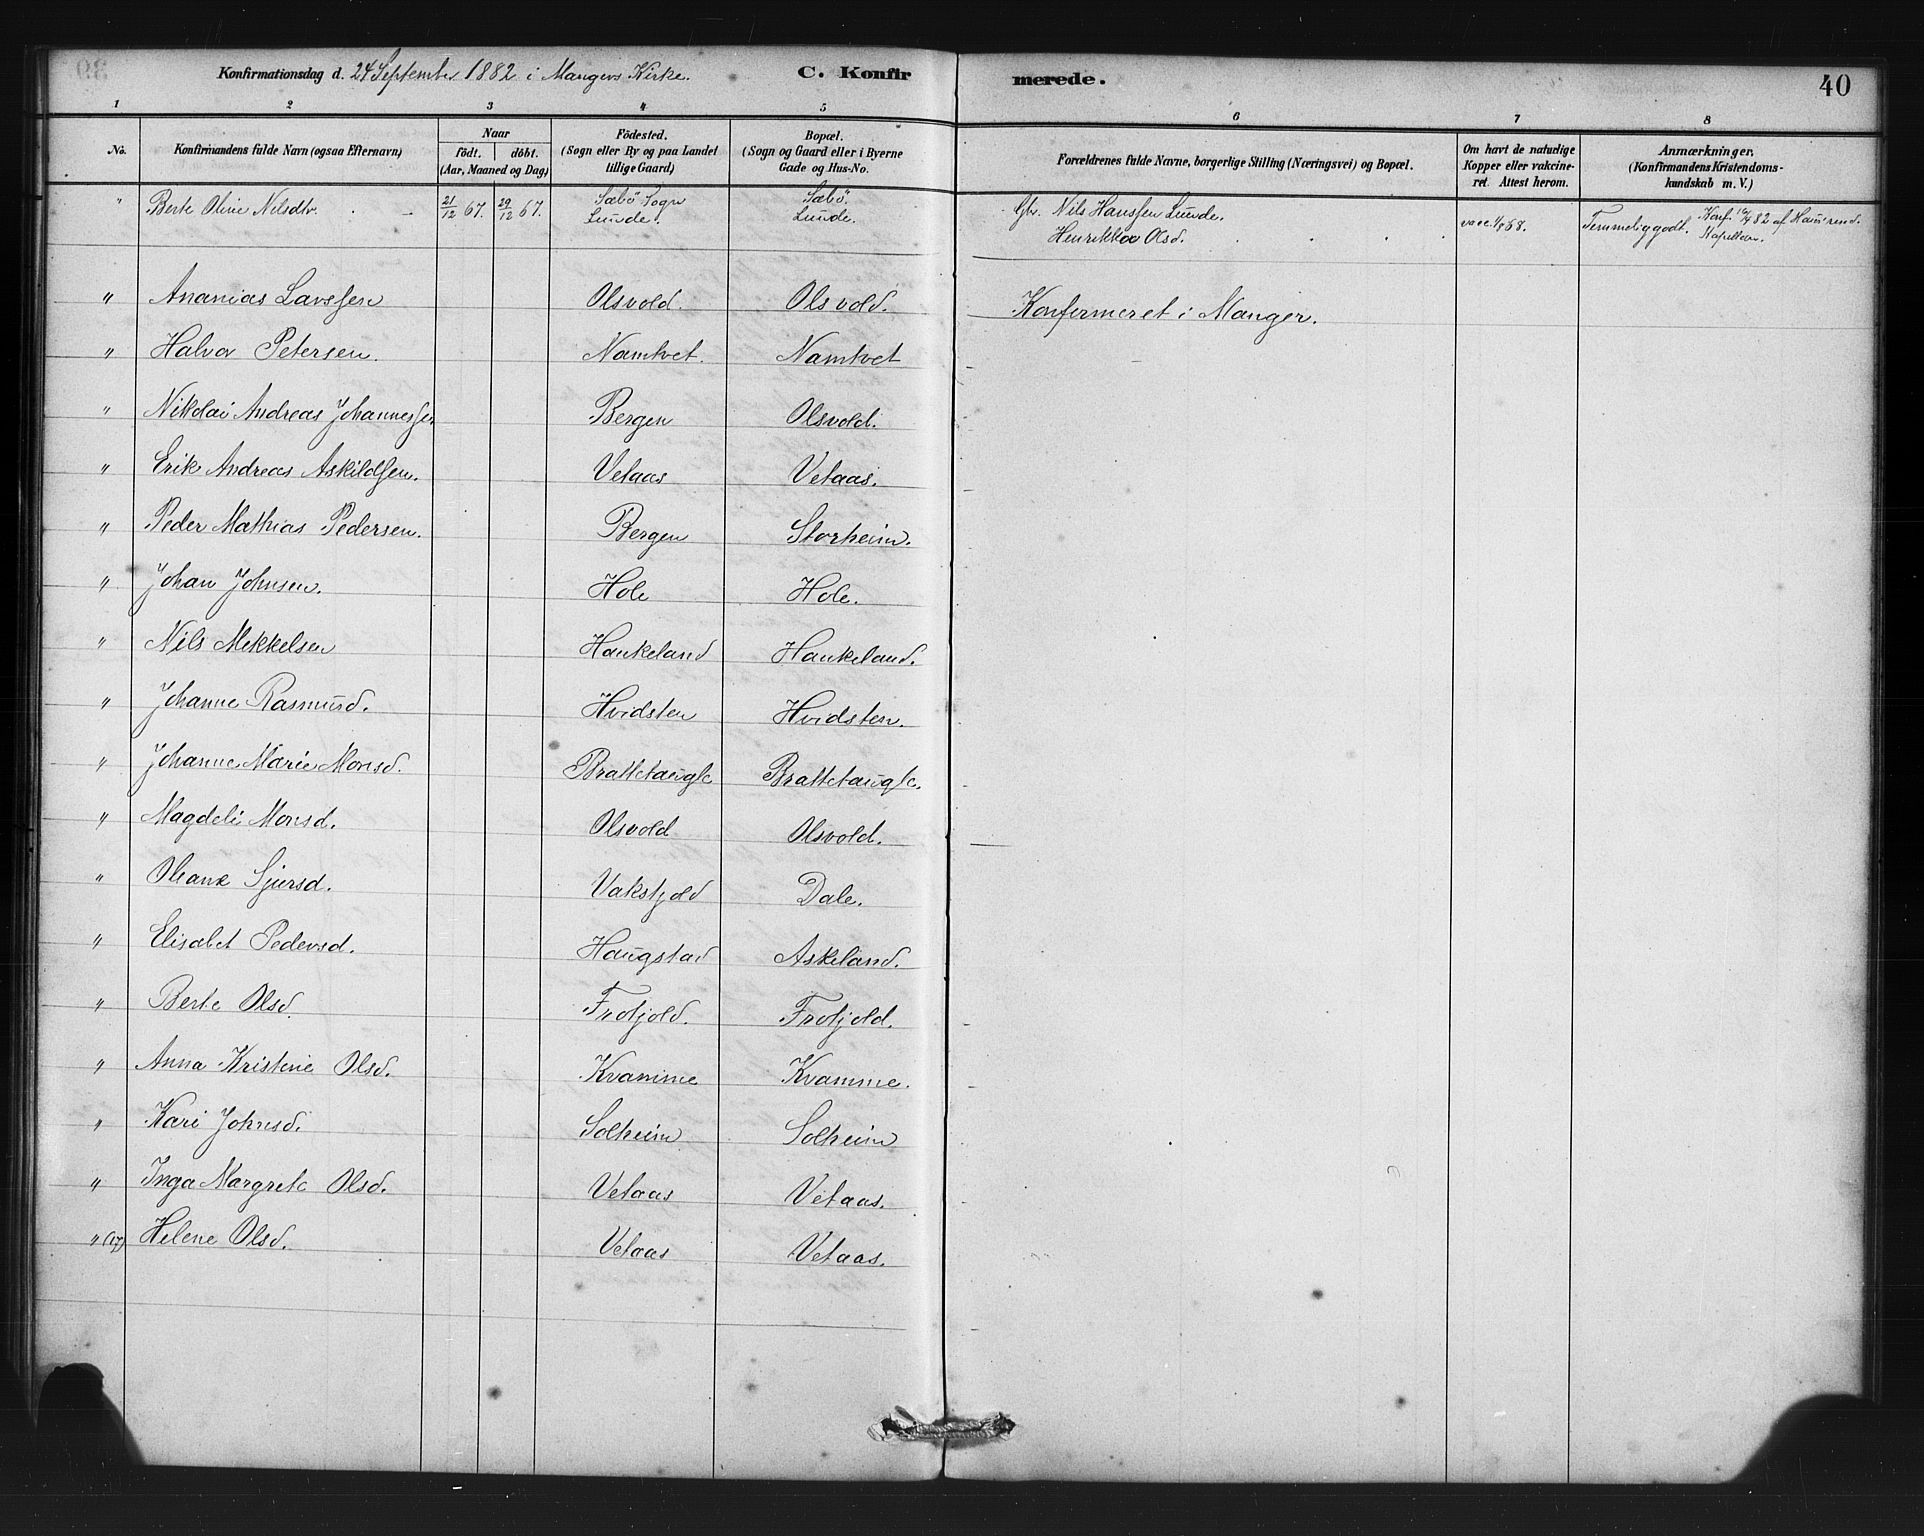 Konfirmationsdag d. 24 September 1882 i Mangers Kirke. C. Konfirmerede. 40
1 2 3 4 5 6 7 8
No. Konfirmandens fulde Navn (ogsaa Efternavn) Naar födt. döbt. (Aar, Maaned og Dag) Födested. (Sogn eller By og paa Landet tillige Gaard) Bopæl. (Sogn og Gaard eller i Byerne Gade og Hus-No. Forældrenes fulde Navne, borgerlige Stilling (Næringsvei) og Bopæl. Om havt de naturlige Kopper eller vakcineret. Attest herom. Anmærkninger. (Konfirmandens Kristendomskundskab m. V.)
" Berte Oline Nilsdtr. 21/12 67. 29/12 67. Sæbö Sogn Lunde. Sæbö. Lunde. Gbr. Nils Hanssen Lunde. Henrikka Olsd. Temmelig godt. Kapellan.
" Ananias Larssen Olsvold. Olsvold. Konfermeret i Manger.
" Halvor Petersen. Namtvet. Namtvet
" Nikolai Andreas Johannessen Bergen Olsvold.
" Erik Andreas Askildsen. Vetaas Vetaas.
" Peder Mathias Pedersen. Bergen Storheim.
" Johan Johnsen. Hole Hole.
" Nils Mikkelsen Haukeland Haukeland.
" Johanne Rasmusd. Hvidsten Hvidsten.
" Johanne Marie Monsd. Brattetaugle Brattetaugle.
" Magdeli Monsd. Olsvold Olsvold.
" Oleane Sjursd. Vakstjold Dale.
" Elisabet Pedersd. Haugstad Askeland.
" Berte Olsd. Frotjold. Frotjold.
" Anna Kristine Olsd. Kvamme Kvamme.
" Kari Johnsd. Solheim Solheim
" Inga Margrete Olsd. Vetaas Vetaas.
" (17) Helene Olsd. Vetaas Vetaas.